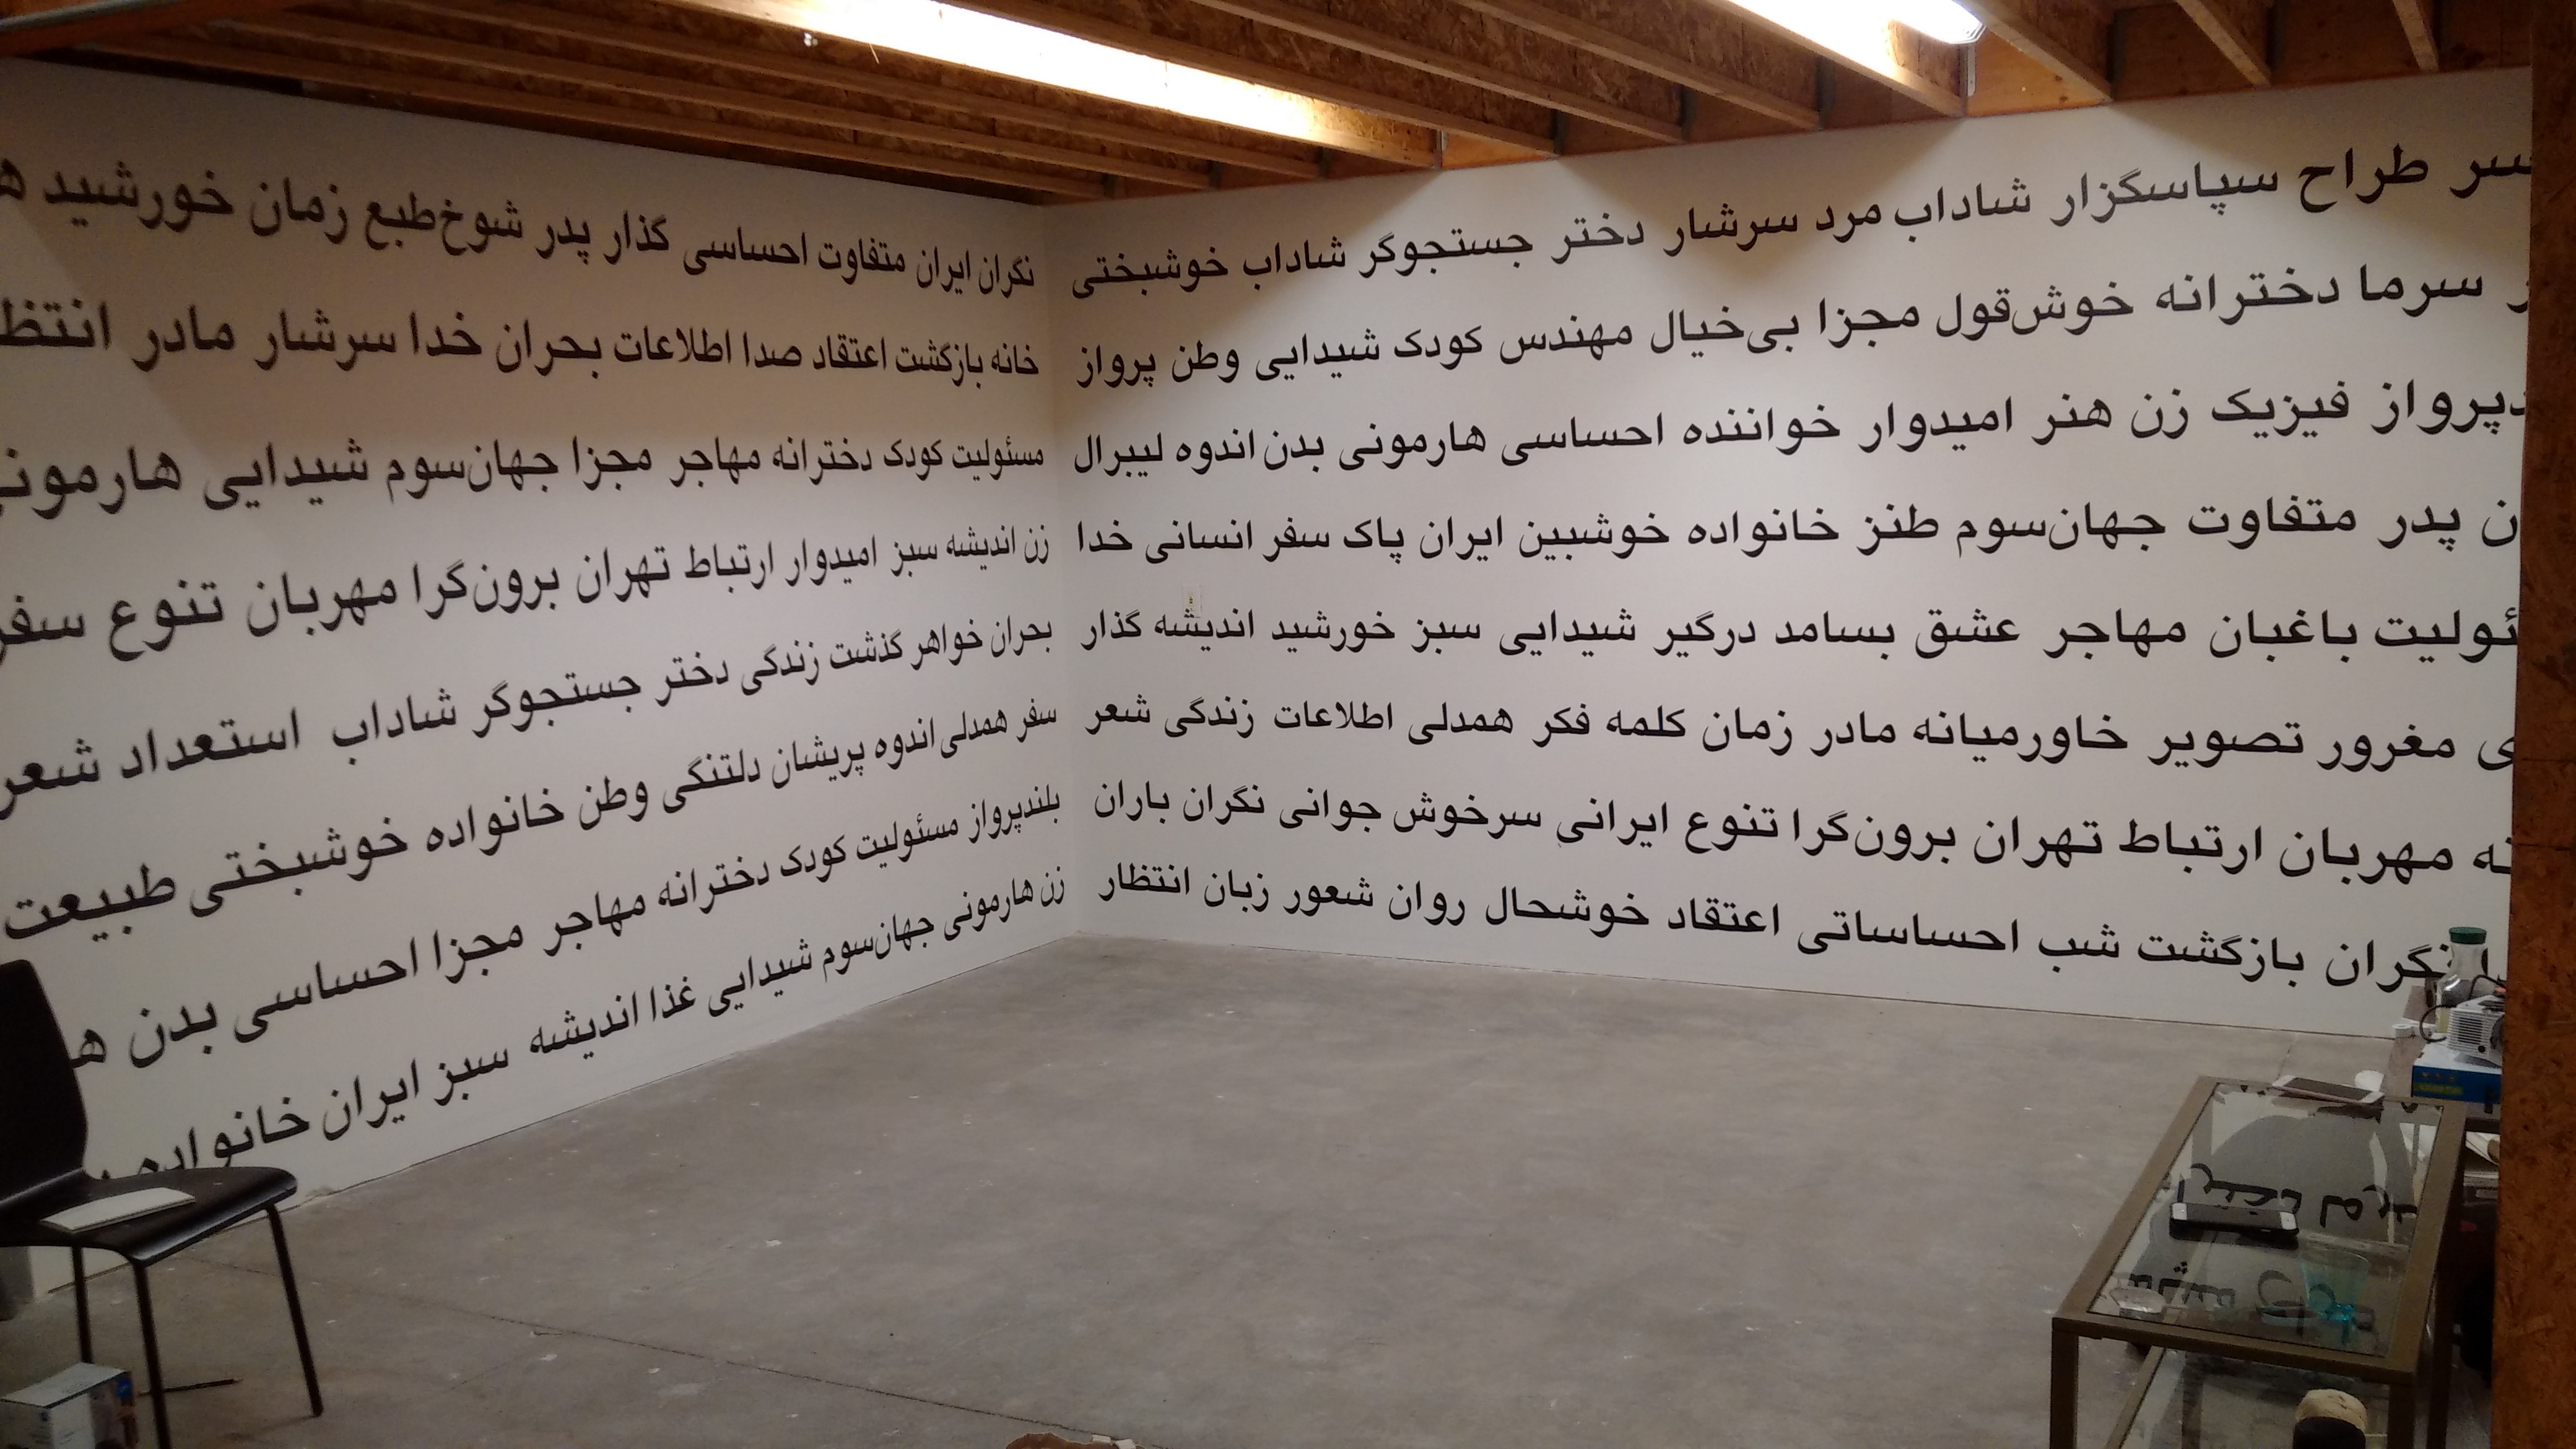 طراح سپاسگزار شاداب مرد سرشار دختر جستجوگر شاداب خوشبختی
سرما دخترانه خوش‌قول مجزا بی‌خیال مهندس کودک شیدایی وطن پرواز
پرواز فیزیک زن هنر امیدوار خواننده احساسی هارمونی بدن اندوه لیبرال
پدر متفاوت جهان‌سوم طنز خانواده خوشبین ایران پاک سفر انسانی خدا
باغبان مهاجر عشق بسامد درگیر شیدایی سبز خورشید اندیشه گذار
مغرور تصویر خاورمیانه مادر زمان کلمه فکر همدلی اطلاعات زندگی شعر
مهربان ارتباط تهران برون‌گرا تنوع ایرانی سرخوش جوانی نگران باران
نگران بازگشت شب احساساتی اعتقاد خوشحال روان شعور زبان انتظار
نگران ایران متفاوت احساسی گذار پدر شوخ‌طبع زمان خورشید
خانه بازگشت اعتقاد صدا اطلاعات بحران خدا سرشار مادر
مسئولیت کودک دخترانه مهاجر مجزا جهان‌سوم شیدایی هارمونی
زن اندیشه سبز امیدوار ارتباط تهران برون‌گرا مهربان تنوع سفر
بحران خواهر گذشت زندگی دختر جستجوگر شاداب استعداد شعر
سفر همدلی اندوه پریشان دلتنگی وطن خانواده خوشبختی طبیعت
بلندپرواز مسئولیت کودک دخترانه مهاجر مجزا احساسی بدن
زن هارمونی جهان‌سوم شیدایی غذا اندیشه سبز ایران خانواده